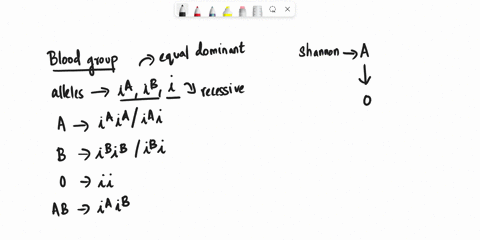 Blood group → equal dominant
alleles → iᴬ, iᴮ, i → recessive
A → iᴬiᴬ / iᴬi
B → iᴮiᴮ / iᴮi
O → ii
AB → iᴬiᴮ
Shannon → A
↓
O